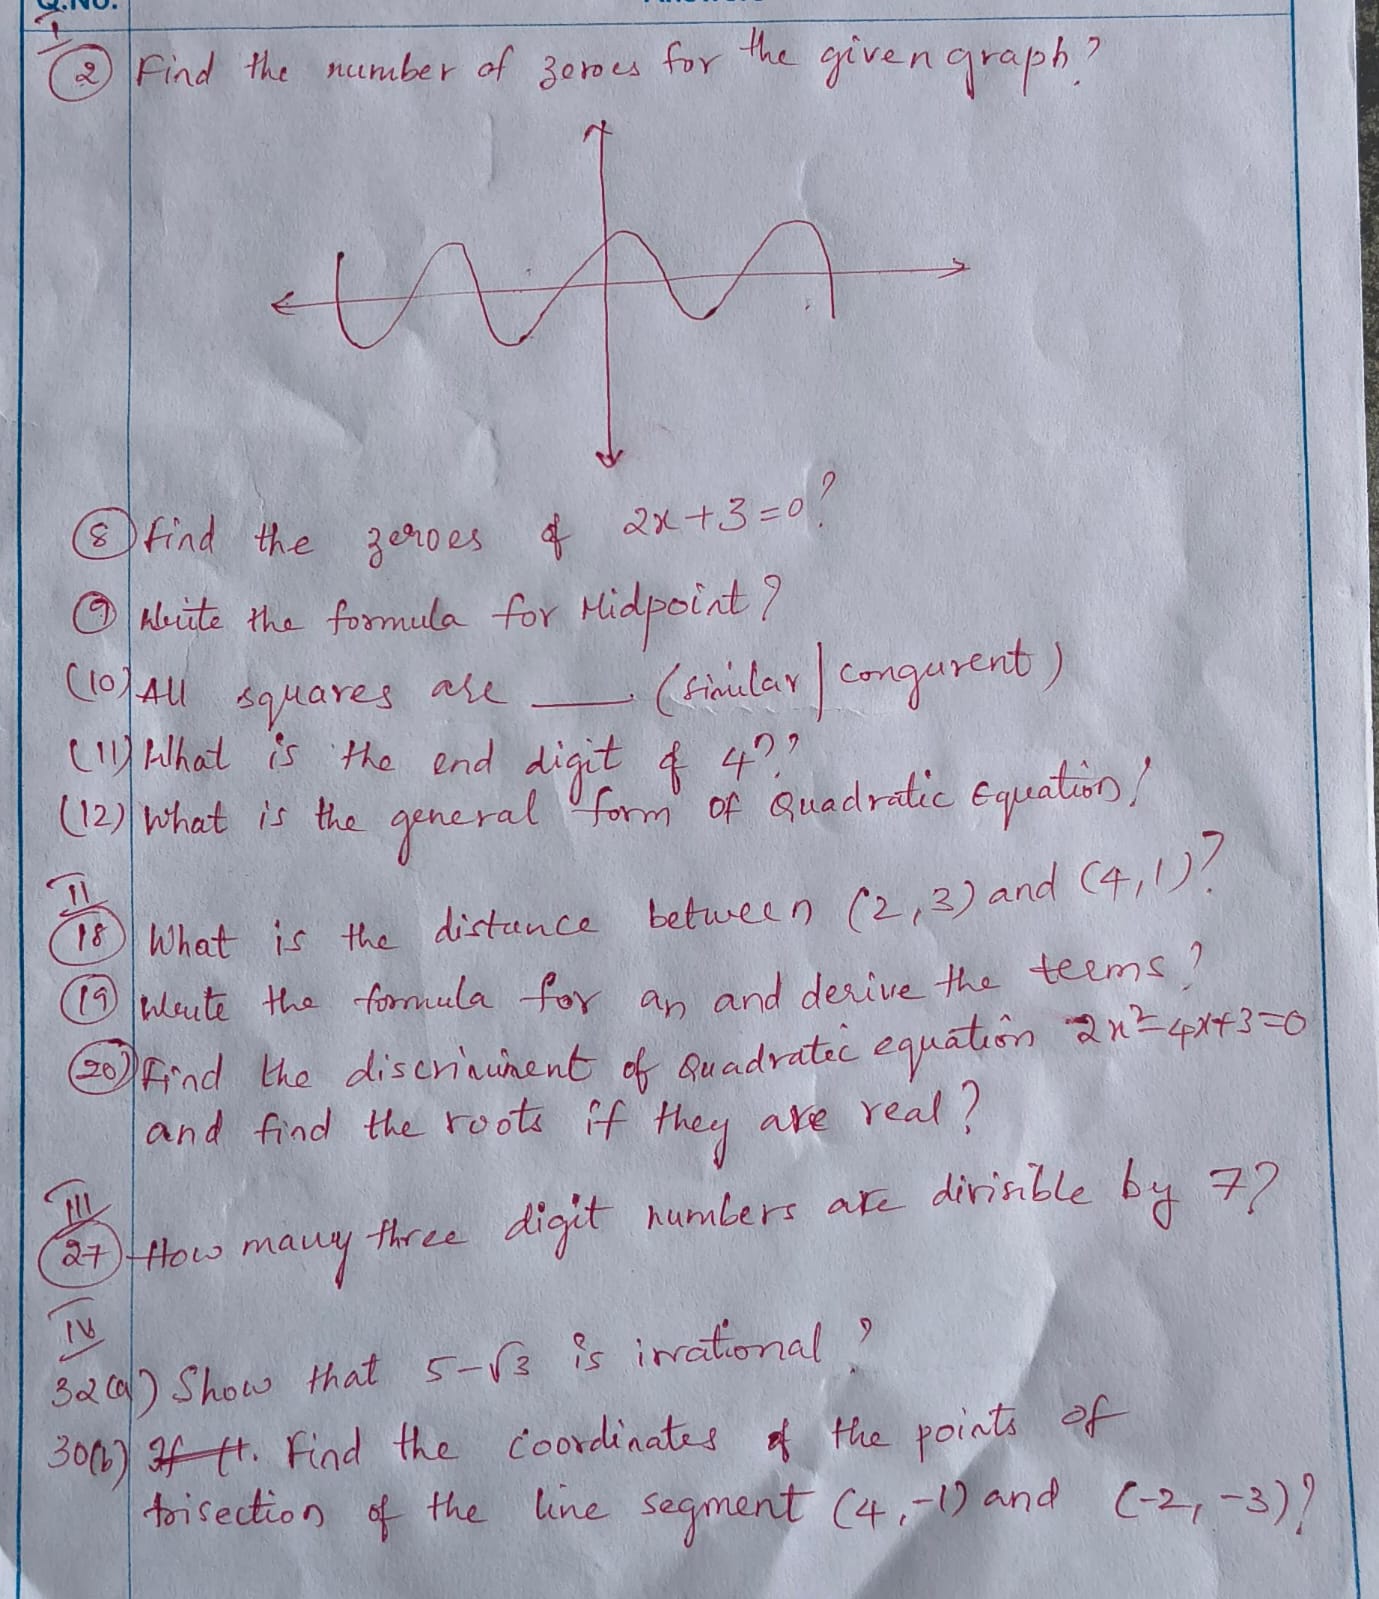 Q.No.
I
(2) Find the number of zeroes for the given graph?
(8) find the zeroes of 2x+3=0?
(9) Write the formula for Midpoint?
(10) All squares are ____ (similar/congurent)
(11) What is the end digit of 4ⁿ?
(12) What is the general form of Quadratic Equation?
II
(18) What is the distance between (2,3) and (4,1)?
(19) Write the formula for an and derive the terms?
(20) Find the discriminent of Quadratic equation 2x²-4x+3=0
and find the roots if they are real?
III
(27) How many three digit numbers are divisible by 7?
IV
32(a) Show that 5-√3 is irrational?
30(b) Find the coordinates of the points of
trisection of the line segment (4,-1) and (-2,-3)?